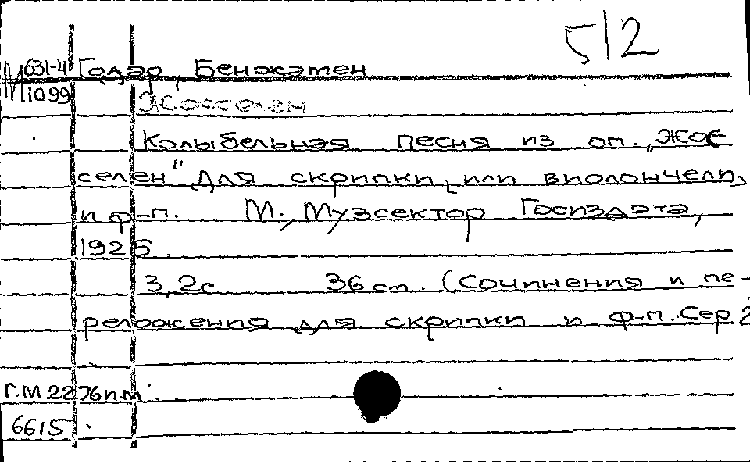 512
М 631-4 Годар, Бенжамен
1099 Жоселен
Колыбельная песня из оп. „Жос
селен" для скрипки, или виолончели,
и ф-п. М., Музсектор Госиздата,
1925
3,2с. 36 см. (Сочинения и пе-
реложения для скрипки и ф-п. Сер.2
Г.М 2276 п.м.
6615